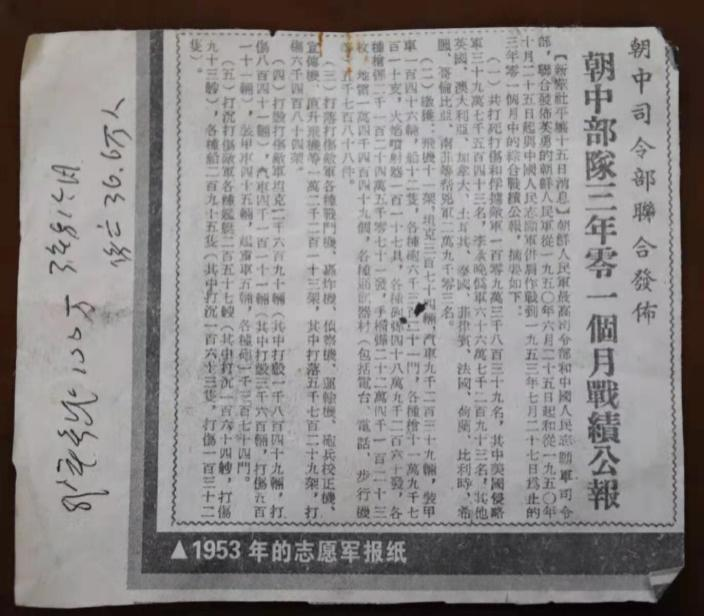 朝中司令部聯合發佈
朝中部隊三年零一個月戰績公報
【新華社平壤十五日消息】朝鮮人民軍最高司令部和中國人民志願軍司令
部，聯合發佈英勇的朝鮮人民軍從一九五〇年六月二十五日起和從一九五〇年
十月二十五日起與中國人民志願軍併肩作戰到一九五三年七月二十七日為止的
三年零一個月中的綜合戰績公報，摘要如下：
（一）共打死打傷和俘擄敵軍一百零九萬三千八百三十九名，其中美國侵略
軍三十九萬七千五百四十三名，李承晚僞軍六十六萬七千二百九十三名，其他
英國、澳大利亞、加拿大、土耳其、泰國、菲律賓、法國、荷蘭、比利時、希
臘、哥倫比亞、南非等幫兇軍二萬九千零三名。
（二）繳獲：飛機十一架，坦克三百七十四輛，汽車九千二百三十九輛，裝甲
車一百四十六輛，船十二隻，各種砲六千三百二十一門，各種槍十一萬九千七
百一十支，火焰噴射器一百一十七具，各種砲彈四十八萬九千二百六十發，各
種槍彈二千一百二十四萬五千零七十一發，手榴彈二十二萬四千一百二十三
枚，地雷一萬四千四百四十九個，各種通訊器材（包括電台、電話、步行機
等）五千七百八十八件。
（三）打落打傷敵軍各種戰鬥機、轟炸機、偵察機、運輸機、砲兵校正機、
宣傳機、直升飛機等一萬二千二百一十三架，其中打落五千七百二十九架，打
傷六千四百八十四架。
（四）打毀打傷敵軍坦克二千六百九十輛（其中打毀一千八百四十九輛，打
傷八百四十一輛），汽車四千一百一十一輛（其中打毀三千六百輛，打傷五百
一十一輛），裝甲車四十五輛，起重車五輛，各種砲一千三百七十四門。
（五）打沉打傷敵軍各種艦艇二百五十七艘（其中打沉一百六十四艘，打傷
九十三艘），各種船二百九十五隻（其中打沉一百六十三隻，打傷一百三十二
隻）。
▲1953 年的志愿军报纸
36.6万人